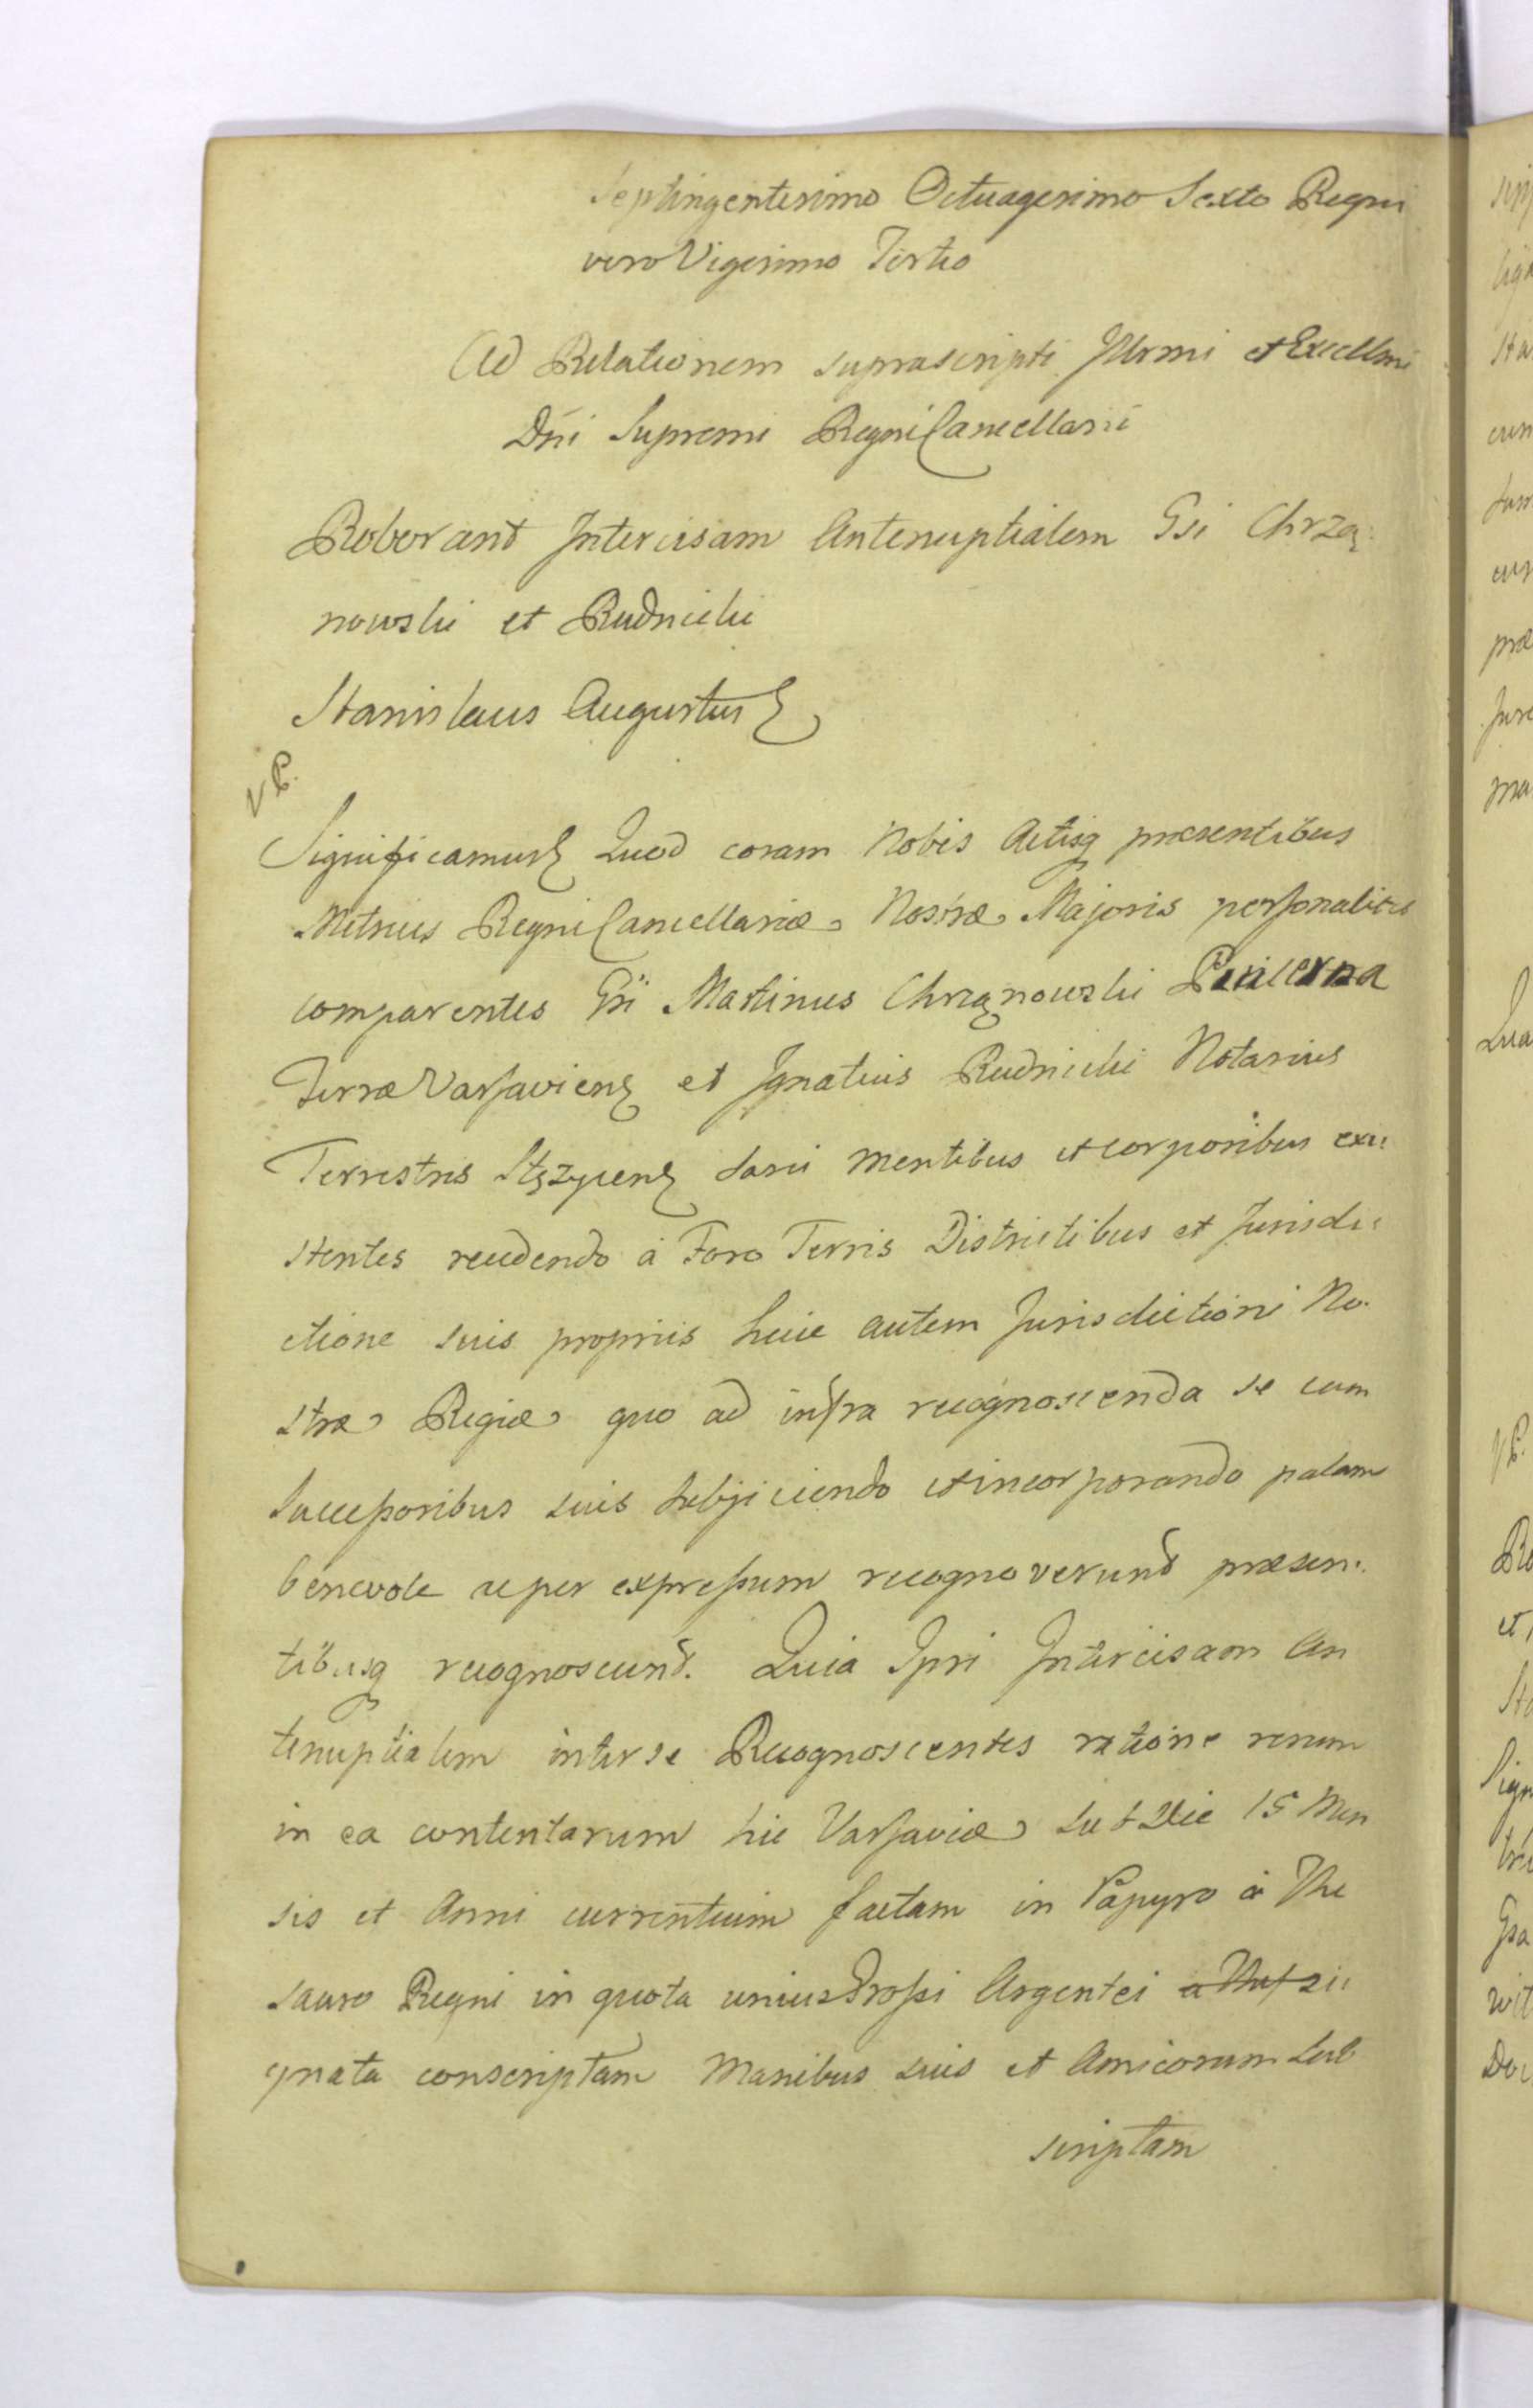 Septingentesimo Octuagesimo Sexto Regni
vero Vigesimo Tertio
Ad Relationem suprascripti Illrmi et Excellmi
Dñi Supremi Regni Cancellarii
Roborant Intercisam Antenuptialem Gsi Chrzą
nowski et Rudnicki
Stanislaus Augustus
VR.
Significamus Quod coram Nobis Actisq praesentibus
Metrices Regni Cancellariæ Nostræ Majoris personaliter
comparentes Gsi Martinus Chrzanowski Pincerna
Terræ Varsaviens et Ignatius Rudnicki Notarius
Terrestris Stężycens sani mentibus et corporibus exi:
stentes recedendo à Foro Terris Districtibus et Jurisdi:
ctione suis propriis huic autem Jurisdictioni No.
stræ Regiæ quo ad infra recognoscenda se cum
Successoribus suis subjiciendo et incorporando palam
benevole ac per expressum recognoverunt præsen:
tibusq recognoscunt. Quia Ipsi Intercisam An
tenuptialem inter se Recognoscentes ratione rerum
in ea contentarum hic Varsaviæ sub Die 15 Men
sis et Anni currentium factam in Papyro à The
sauro Regni in quota unius Grossi Argentei si:
gnata conscriptam Manibus suis et Amicorum sub
scriptam